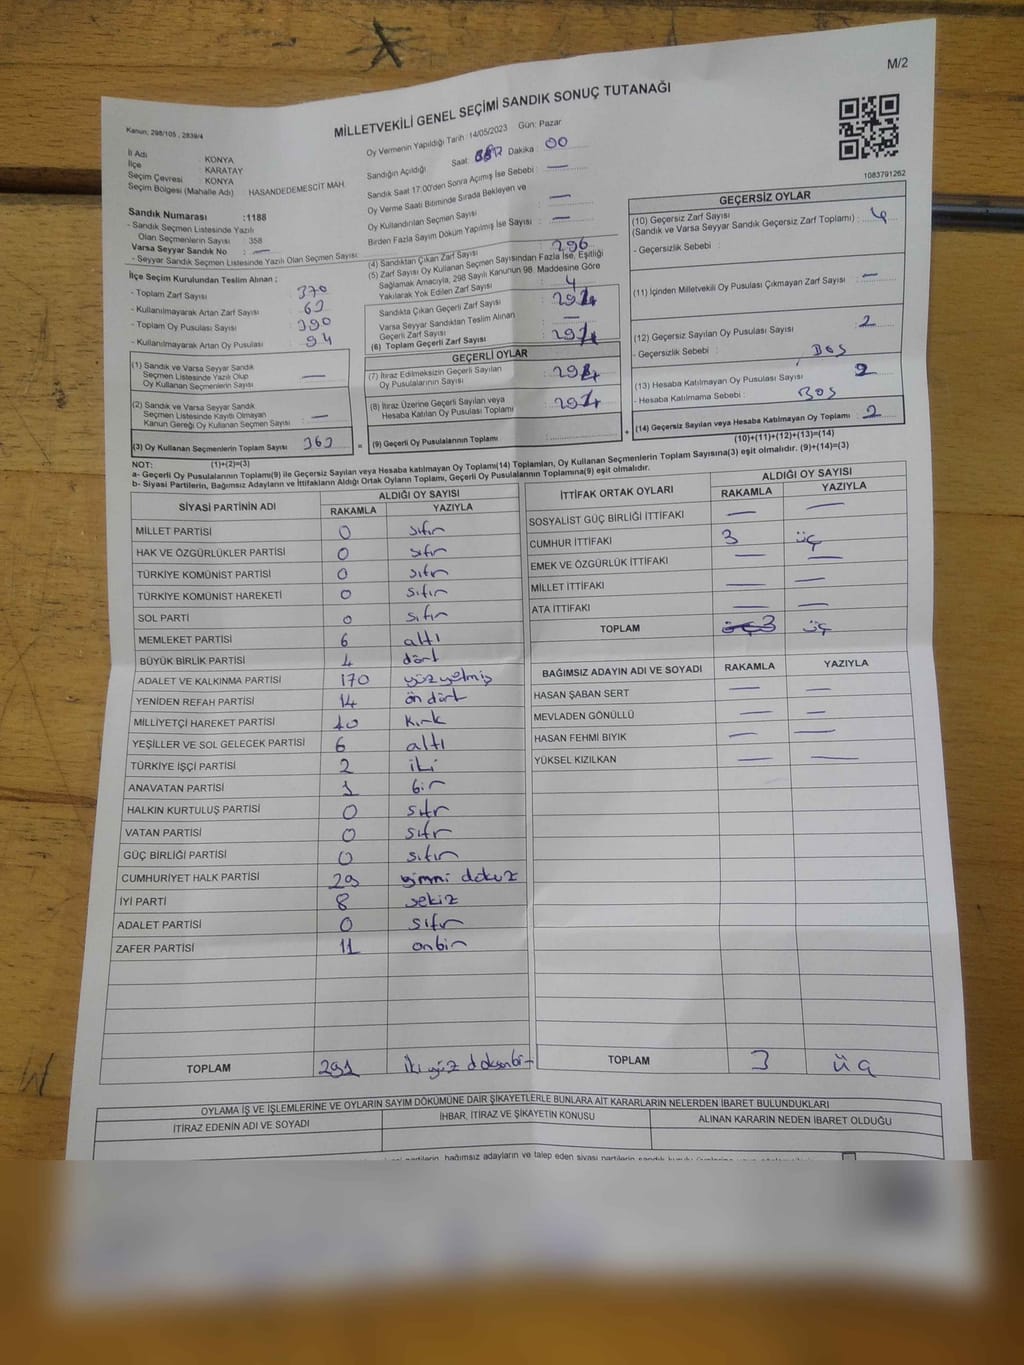 M/2
MİLLETVEKİLİ GENEL SEÇİMİ SANDIK SONUÇ TUTANAĞI
Kanun: 298/105 , 2839/4
İl Adı : KONYA
İlçe : KARATAY
Seçim Çevresi : KONYA
Seçim Bölgesi (Mahalle Adı) HASANDEDEMESCİT MAH.
Sandık Numarası :1188
- Sandık Seçmen Listesinde Yazılı
Olan Seçmenlerin Sayısı : 358
Varsa Seyyar Sandık No : —
- Seyyar Sandık Seçmen Listesinde Yazılı Olan Seçmen Sayısı:
İlçe Seçim Kurulundan Teslim Alınan ;
- Toplam Zarf Sayısı : 370
- Kullanılmayarak Artan Zarf Sayısı :
- Toplam Oy Pusulası Sayısı : 390
- Kullanılmayarak Artan Oy Pusulası : 94
(1) Sandık ve Varsa Seyyar Sandık
Seçmen Listesinde Yazılı Olup
Oy Kullanan Seçmenlerin Sayısı : —
(2) Sandık ve Varsa Seyyar Sandık
Seçmen Listesinde Kayıtlı Olmayan
Kanun Gereği Oy Kullanan Seçmen Sayısı : —
(3) Oy Kullanan Seçmenlerin Toplam Sayısı :
(1)+(2)=(3)
Oy Vermenin Yapıldığı Tarih :14/05/2023 Gün: Pazar
Sandığın Açıldığı Saat: Dakika 00
Sandık Saat 17:00'den Sonra Açımış İse Sebebi : —
Oy Verme Saati Bitiminde Sırada Bekleyen ve
Oy Kullandırılan Seçmen Sayısı : —
Birden Fazla Sayım Döküm Yapılmış İse Sayısı : —
(4) Sandıktan Çıkan Zarf Sayısı : 296
(5) Zarf Sayısı Oy Kullanan Seçmen Sayısından Fazla İse, Eşitliği
Sağlamak Amacıyla, 298 Sayılı Kanunun 98. Maddesine Göre
Yakılarak Yok Edilen Zarf Sayısı : 4
Sandıkta Çıkan Geçerli Zarf Sayısı :
Varsa Seyyar Sandıktan Teslim Alınan
Geçerli Zarf Sayısı : —
(6) Toplam Geçerli Zarf Sayısı :
GEÇERLİ OYLAR
(7) İtiraz Edilmeksizin Geçerli Sayılan
Oy Pusulalarının Sayısı :
(8) İtiraz Üzerine Geçerli Sayılan veya
Hesaba Katılan Oy Pusulası Toplamı :
= (9) Geçerli Oy Pusulalarının Toplamı : +
1083791262
GEÇERSİZ OYLAR
(10) Geçersiz Zarf Sayısı
(Sandık ve Varsa Seyyar Sandık Geçersiz Zarf Toplamı) :
- Geçersizlik Sebebi :
(11) İçinden Milletvekili Oy Pusulası Çıkmayan Zarf Sayısı : —
(12) Geçersiz Sayılan Oy Pusulası Sayısı : 2
- Geçersizlik Sebebi : BOS
(13) Hesaba Katılmayan Oy Pusulası Sayısı : 2
- Hesaba Katılmama Sebebi : BOS
(14) Geçersiz Sayılan veya Hesaba Katılmayan Oy Toplamı : 2
(10)+(11)+(12)+(13)=(14)
NOT:
a- Geçerli Oy Pusulalarının Toplamı(9) ile Geçersiz Sayılan veya Hesaba katılmayan Oy Toplamı(14) Toplamları, Oy Kullanan Seçmenlerin Toplam Sayısına(3) eşit olmalıdır. (9)+(14)=(3)
b- Siyasi Partilerin, Bağımsız Adayların ve İttifakların Aldığı Ortak Oyların Toplamı, Geçerli Oy Pusulalarının Toplamına(9) eşit olmalıdır.
SİYASİ PARTİNİN ADI ALDIĞI OY SAYISI
RAKAMLA YAZIYLA
MİLLET PARTİSİ 0 sıfır
HAK VE ÖZGÜRLÜKLER PARTİSİ 0 sıfır
TÜRKİYE KOMÜNİST PARTİSİ 0 sıfır
TÜRKİYE KOMÜNİST HAREKETİ 0 sıfır
SOL PARTİ 0 sıfır
MEMLEKET PARTİSİ 6 altı
BÜYÜK BİRLİK PARTİSİ 4 dört
ADALET VE KALKINMA PARTİSİ 170 yüzyetmiş
YENİDEN REFAH PARTİSİ 14 ön dört
MİLLİYETÇİ HAREKET PARTİSİ 40 kırk
YEŞİLLER VE SOL GELECEK PARTİSİ 6 altı
TÜRKİYE İŞÇİ PARTİSİ 2 iki
ANAVATAN PARTİSİ 1 bir
HALKIN KURTULUŞ PARTİSİ 0 sıfır
VATAN PARTİSİ 0 sıfır
GÜÇ BİRLİĞİ PARTİSİ 0 sıfır
CUMHURİYET HALK PARTİSİ 29 yirmi dokuz
İYİ PARTİ 8 sekiz
ADALET PARTİSİ 0 sıfır
ZAFER PARTİSİ 11 onbir
TOPLAM 291 iki yüz doksanbir
İTTİFAK ORTAK OYLARI ALDIĞI OY SAYISI
RAKAMLA YAZIYLA
SOSYALİST GÜÇ BİRLİĞİ İTTİFAKI — —
CUMHUR İTTİFAKI 3 üç
EMEK VE ÖZGÜRLÜK İTTİFAKI — —
MİLLET İTTİFAKI — —
ATA İTTİFAKI — —
TOPLAM üç 3 üç
BAĞIMSIZ ADAYIN ADI VE SOYADI RAKAMLA YAZIYLA
HASAN ŞABAN SERT — —
MEVLADEN GÖNÜLLÜ — —
HASAN FEHMİ BIYIK — —
YÜKSEL KIZILKAN — —
TOPLAM 3 üç
OYLAMA İŞ VE İŞLEMLERİNE VE OYLARIN SAYIM DÖKÜMÜNE DAİR ŞİKAYETLERLE BUNLARA AİT KARARLARIN NELERDEN İBARET BULUNDUKLARI
İTİRAZ EDENİN ADI VE SOYADI İHBAR, İTİRAZ VE ŞİKAYETİN KONUSU ALINAN KARARIN NEDEN İBARET OLDUĞU